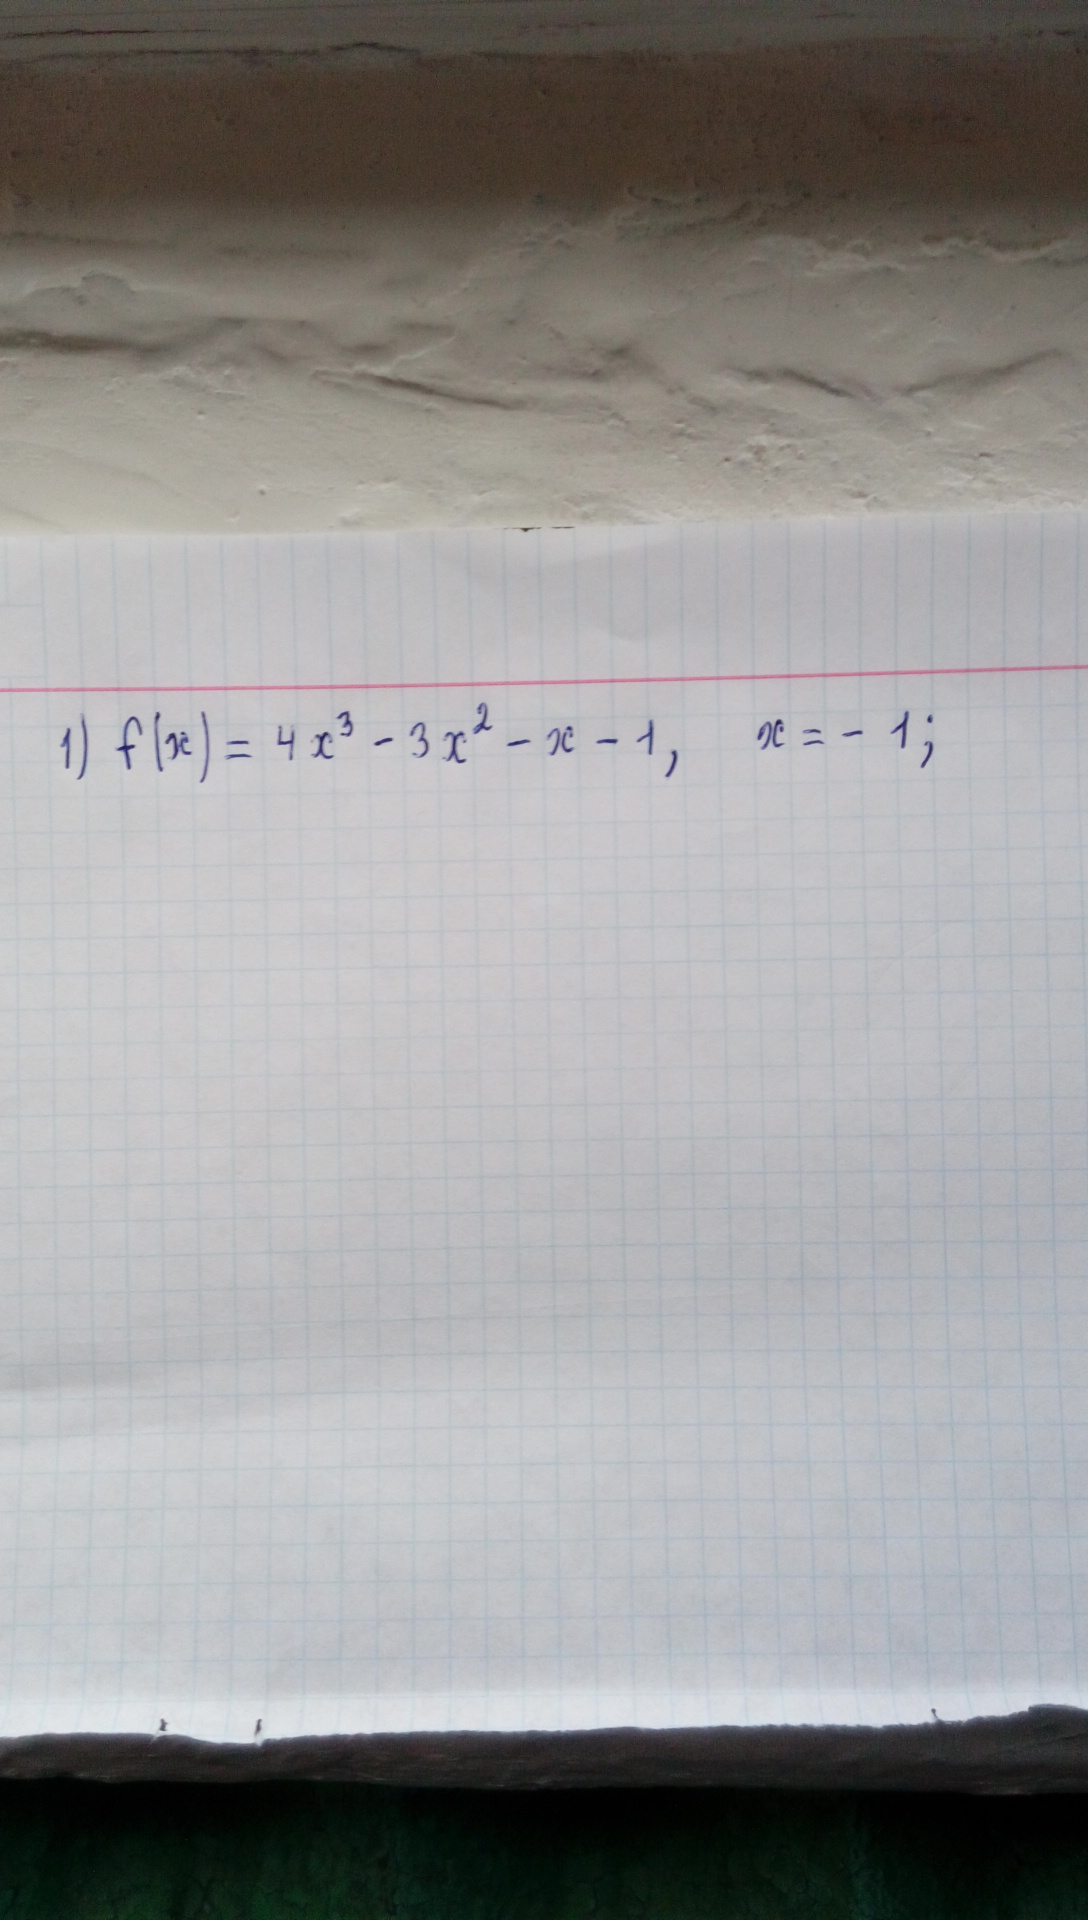 1) f(x) = 4x³ - 3x² - x - 1, x = - 1;